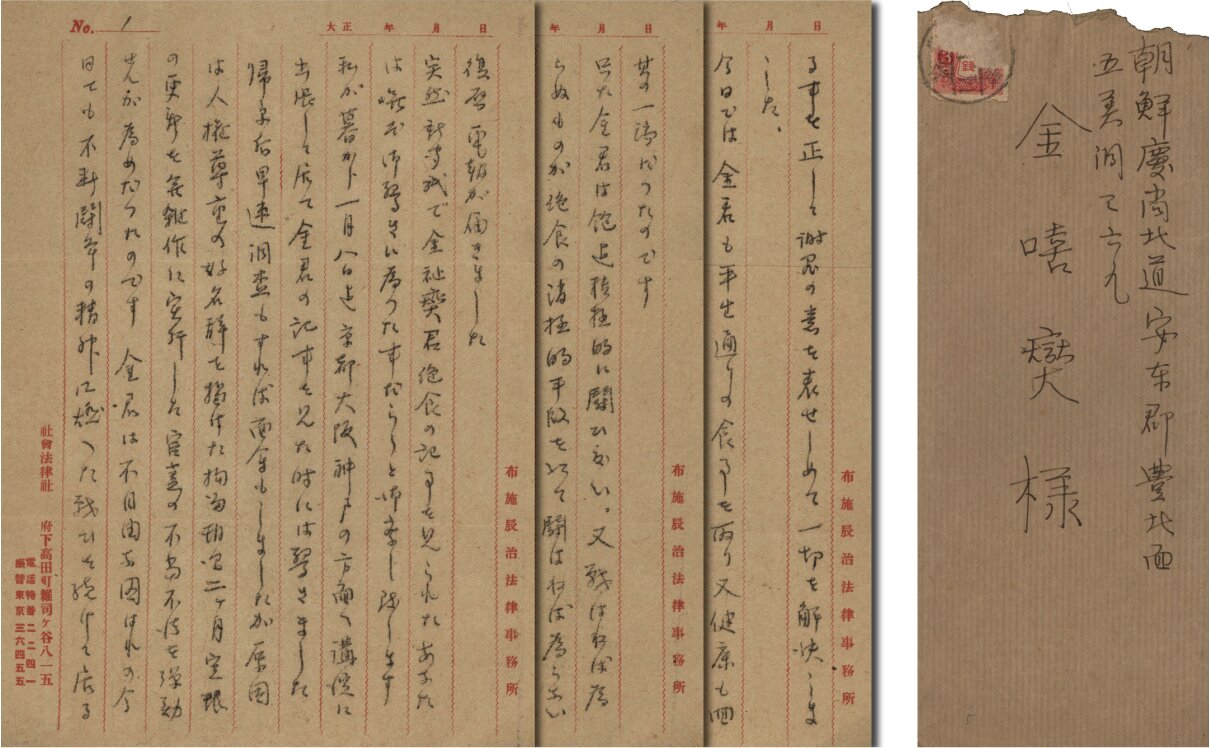 No. 1
大正 年 月 日
復啓 電報が届きました
突然新聞紙で金祉燮君絶食の記事を見られたあなた
は嘸かし御驚きに為った事だらうと御察し致します
私が暮から一月八日迄京都大阪神戸の方面へ講演に
出張して居て金君の記事を見た時には驚きました
帰京后早速調査もすれば面会もしましたが原因
は人権尊重の好名辞を掲げた拘留期間二ヶ月宛限
の更新を無雑作に実行した官憲の不当不法を弾劾
せんが為めだったのです 金君は不自由な囚はれの今
日でも不断闘争の精神に燃へた戦ひを続けて居る
社會法律社 府下高田町雜司ヶ谷八一五
電話特番二二四一
振替東京三六四五五
年 月 日
布施辰治法律事務所
其の一端だったのです
只だ金君は飽迄積極的に闘ひ度い。又戦はねば為
らぬものが絶食の消極的手段を以て闘はねば為らない
年 月 日
布施辰治法律事務所
る事を正して謝罪の意を表せしめて一切を解決しま
した、
今日では金君も平生通りの食事を取り又健康も回
布施辰治法律事務所
朝鮮慶尚北道安东郡豊北面
五美洞
金嘻燮様